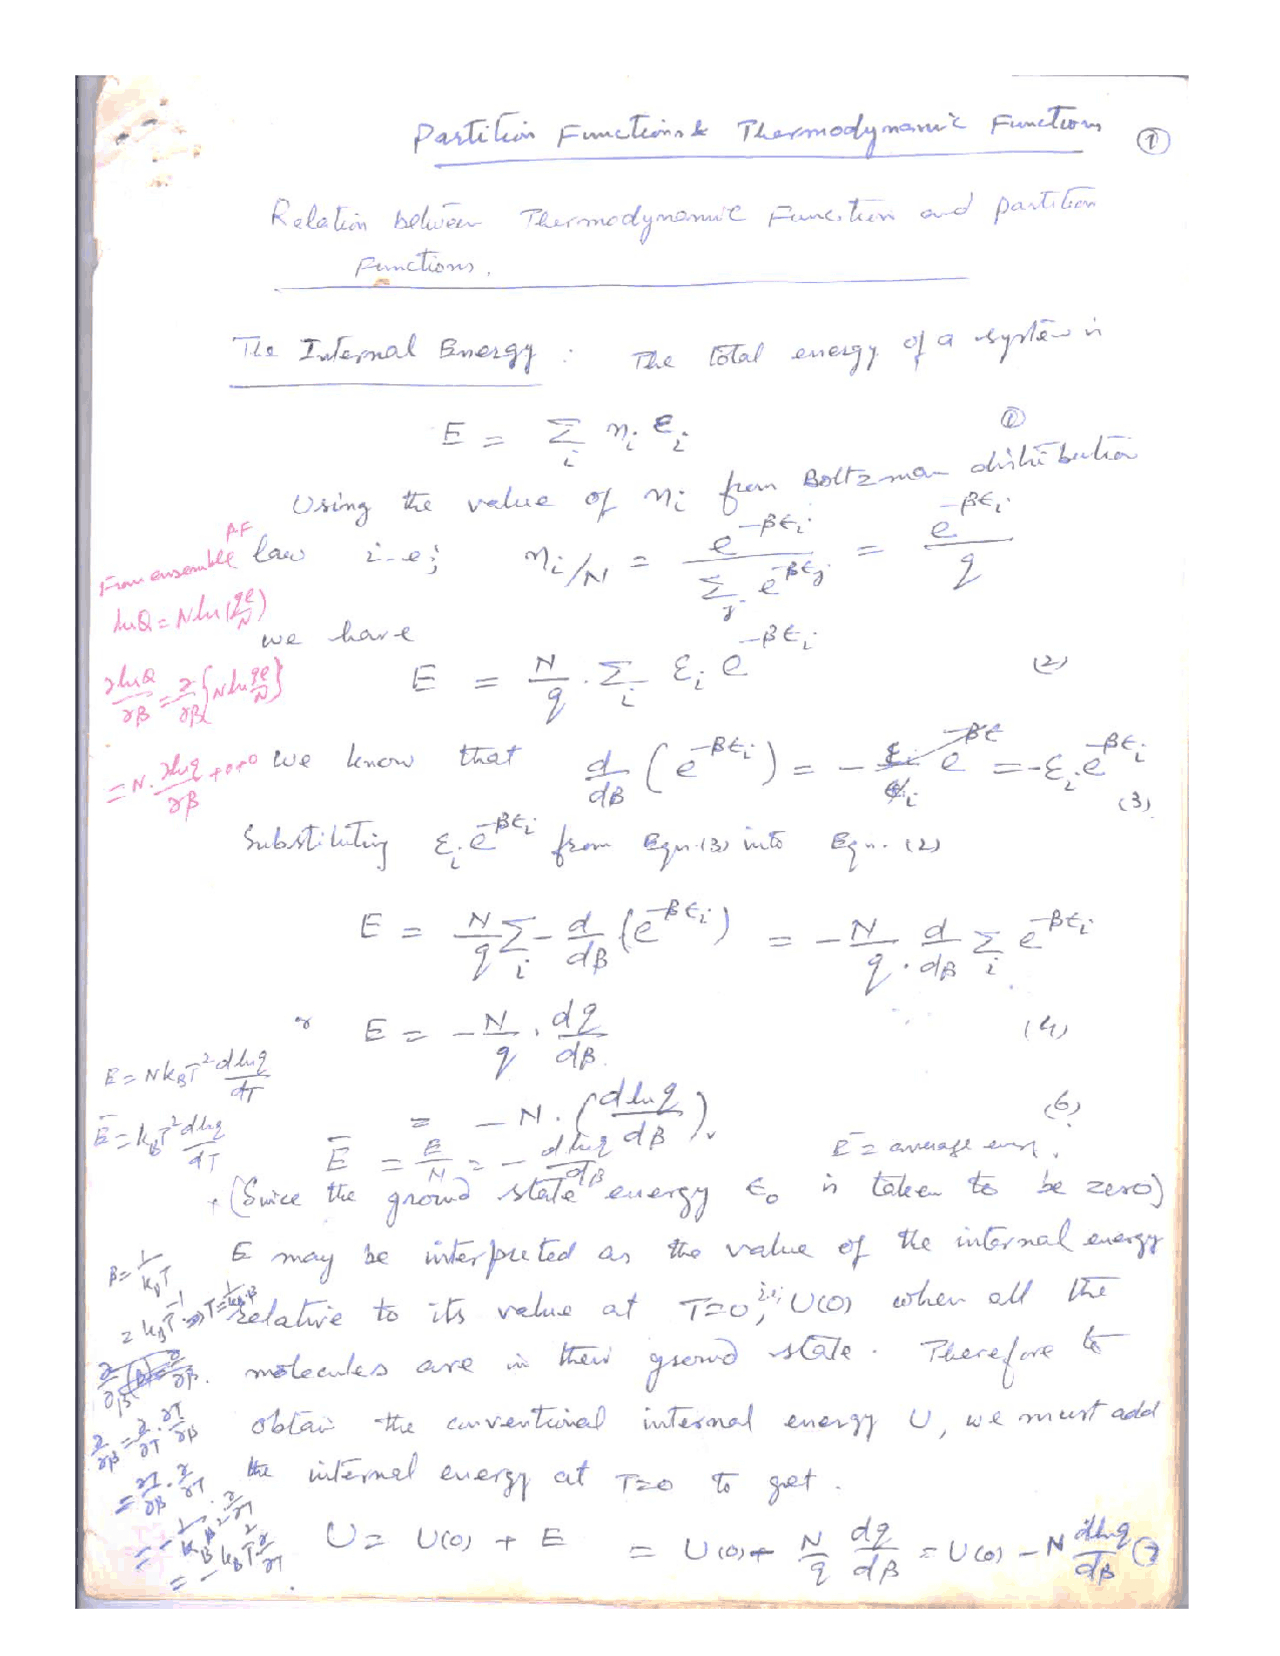 Partition Functions & Thermodynamic Functions ①
Relation between Thermodynamic Function and partition
Functions.
The Internal Energy : The total energy of a system is
E = Σ_i n_i ε_i ①
Using the value of n_i from Boltzman distribution
law i-e; n_i/N = e^{-βε_i} / Σ_j e^{-βε_j} = e^{-βε_i} / q
From ensemble
lnQ = N ln (qe/N)
we have
E = N/q . Σ_i ε_i e^{-βε_i} (2)
∂lnQ/∂β = ∂/∂β {N ln qe/N}
= N. ∂lnq/∂β + 0+0
We know that d/dβ (e^{-βε_i}) = -ε_i e^{-βε_i} (3)
Substituting ε_i e^{-βε_i} from Eqn.(3) into Eqn. (2)
E = N/q Σ_i - d/dβ (e^{-βε_i}) = - N/q . d/dβ Σ_i e^{-βε_i}
or E = - N/q . dq/dβ. (4)
E = Nk_BT² dlnq/dT
= - N. (dlnq/dβ) (6)
Ē = k_BT² dlnq/dT
Ē = E/N = - dlnq/dβ Ē = average
(Since the ground state energy ε₀ is taken to be zero)
E may be interpreted as the value of the internal energy
β = 1/k_BT
relative to its value at T=0, i.e; U(0) when all the
= k_BT^{-1} ⇒ T = 1/k_Bβ
molecules are in their ground state. Therefore to
obtain the conventional internal energy U, we must add
∂/∂β = ∂/∂T . ∂T/∂β
the internal energy at T=0 to get.
= ∂T/∂β . ∂/∂T
= - 1/k_Bβ² . ∂/∂T
= - k_BT² ∂/∂T
U = U(0) + E = U(0) + N/q dq/dβ = U(0) - N dlnq/dβ ⑦